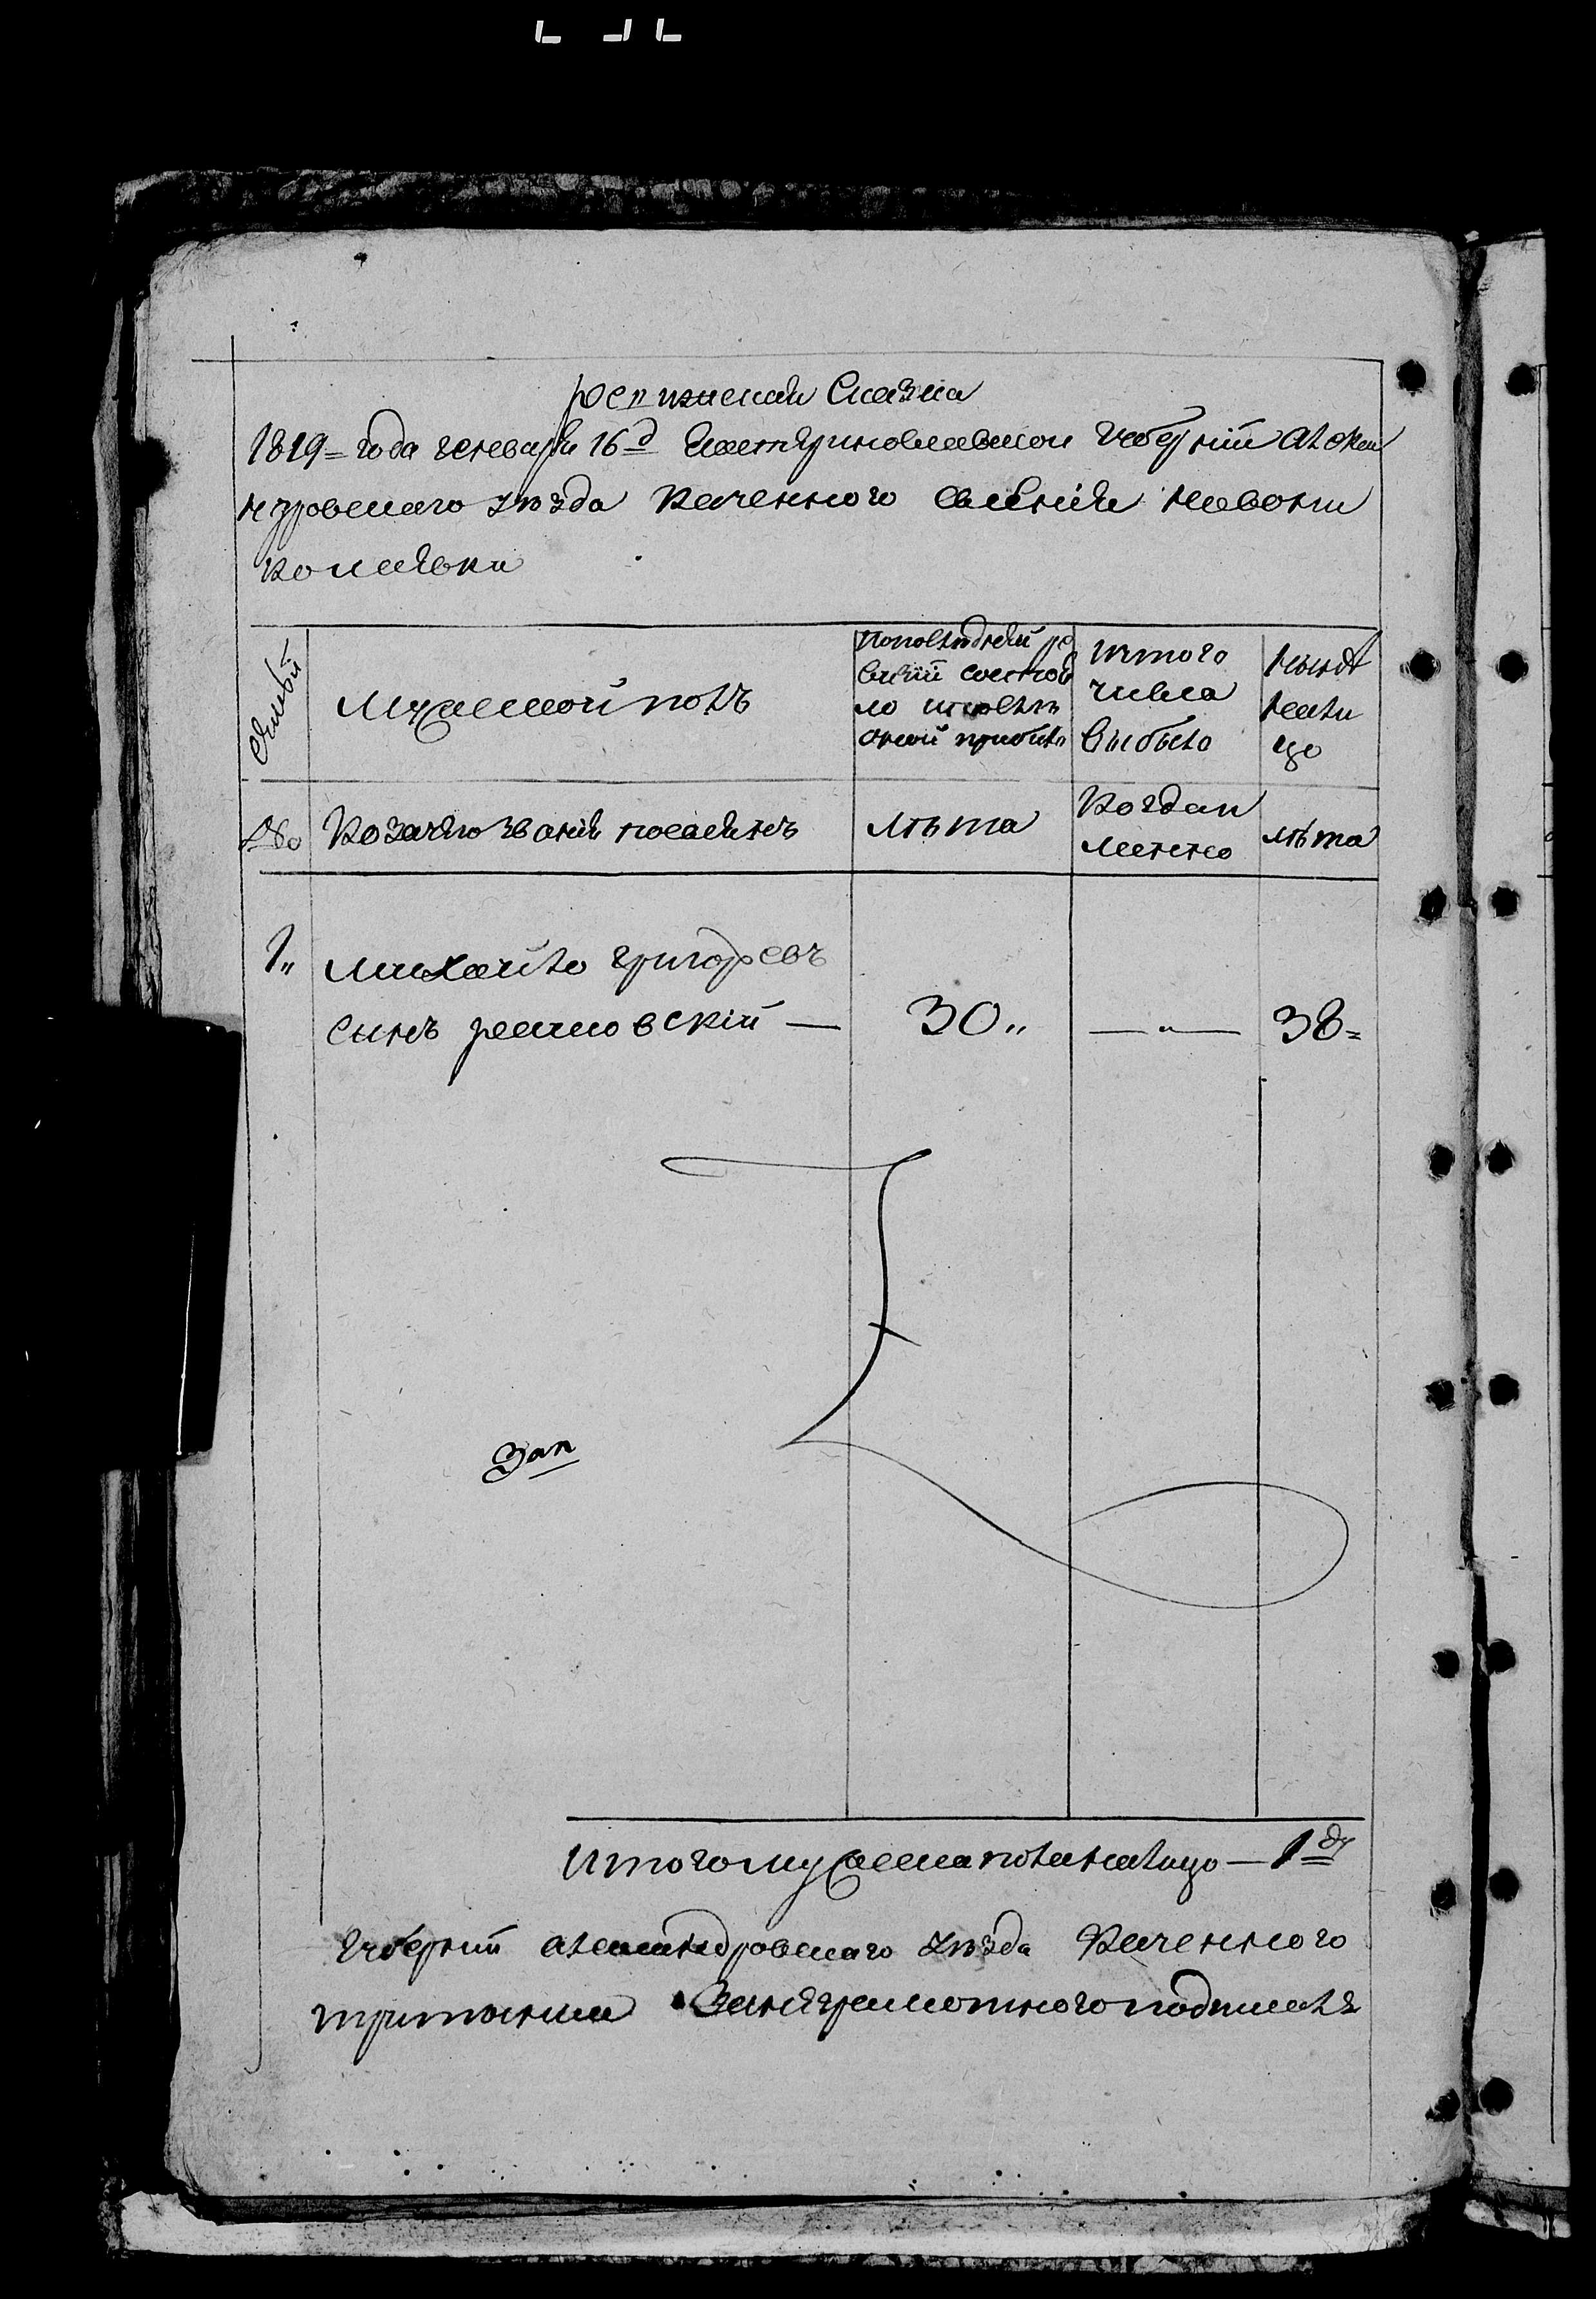 ревижская Сказка
1819= года геневаря 16д Екатериновлавской губерний Алекса
ндровского уезда Казенного селения новони
колаевки
Семьи
Мужеской полъ
Попоследней ре
визий состоя
ло ипослѣ
оной прибыло
Изтого
числа
выбыло
Нынѣ
нали
цо
No
Козачяго звания поселянъ
лѣта
Когдаи
менно
лѣта
1„ михайло григорьевъ
сынъ рашовскій — 30„ — „ — 38=
Зап
Итого мужеска пола налицо — 1 ду
губерний александровскаго уезда Казенного
занеграмотного подписалъ